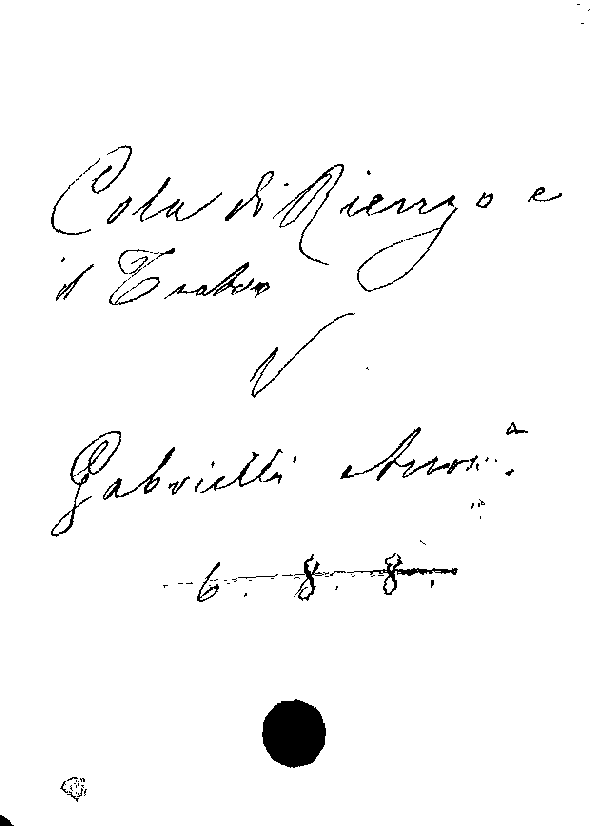 Cola di Rienzo e
il Teatro
V
Gabrielli Anni.ª
6. 8. 8.